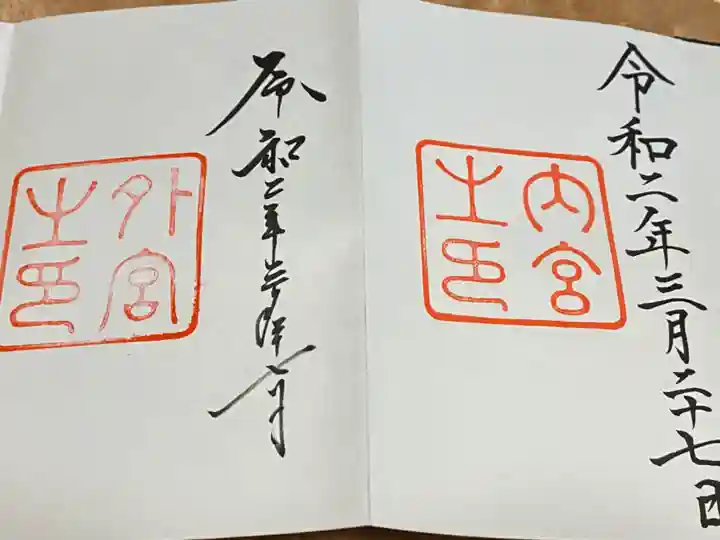 令和二年三月二十七日
内宮
之印
令和二年三月廿七日
外宮
之印